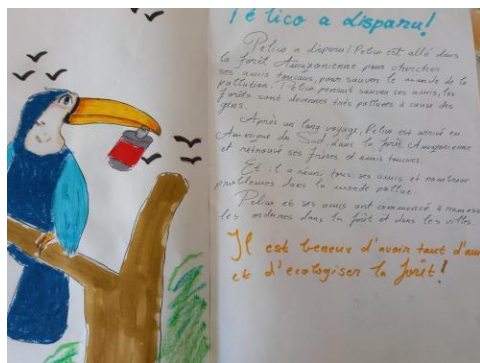 Pélico a disparu!
Pelico a disparu! Pelico est allé dans
la forêt Amazonienne pour chercher
ses amis toucans, pour sauver le monde de la
pollution. Pélico pensait sauver ses amis, les
forêts sont devenues très polluées à cause des
gens.
Après un long voyage, Pelico est arrivé en
Amerique du Sud, dans la forêt Amazonienne
et retrouvé ses frères et amis toucans.
Et il a réuni tous ses amis et
problemes dans la monde pollue.
Pelico et ses amis ont commencé à
les ordures dans la forêt et dans les villes.
Il est heureux d'avoir tant d'
et d'ecologiser la forêt!